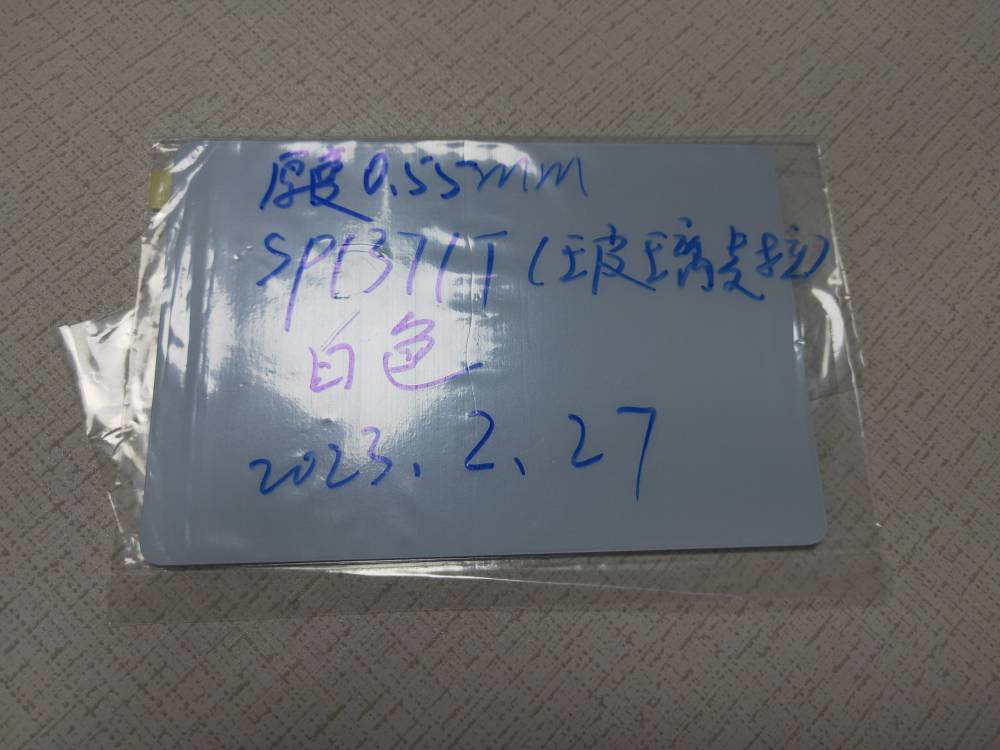 厚度0.55mm
SP1371T(玻璃皮拉)
白色
2023.2.27